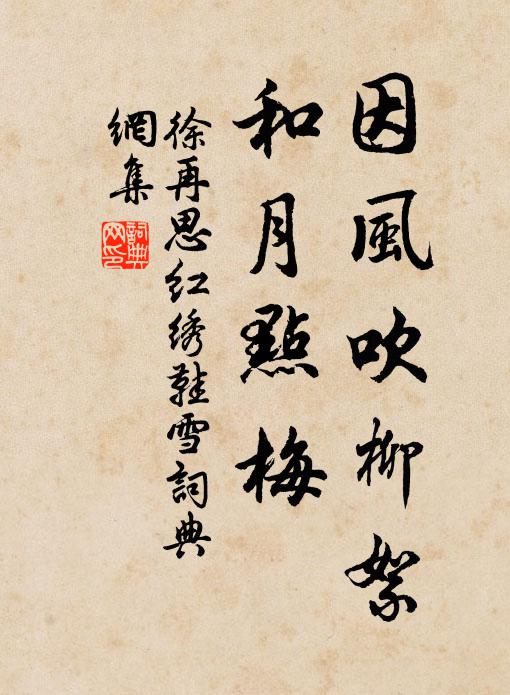 因風吹柳絮
和月點梅
徐再思红绣鞋雪詞典
網集
詞典
网印